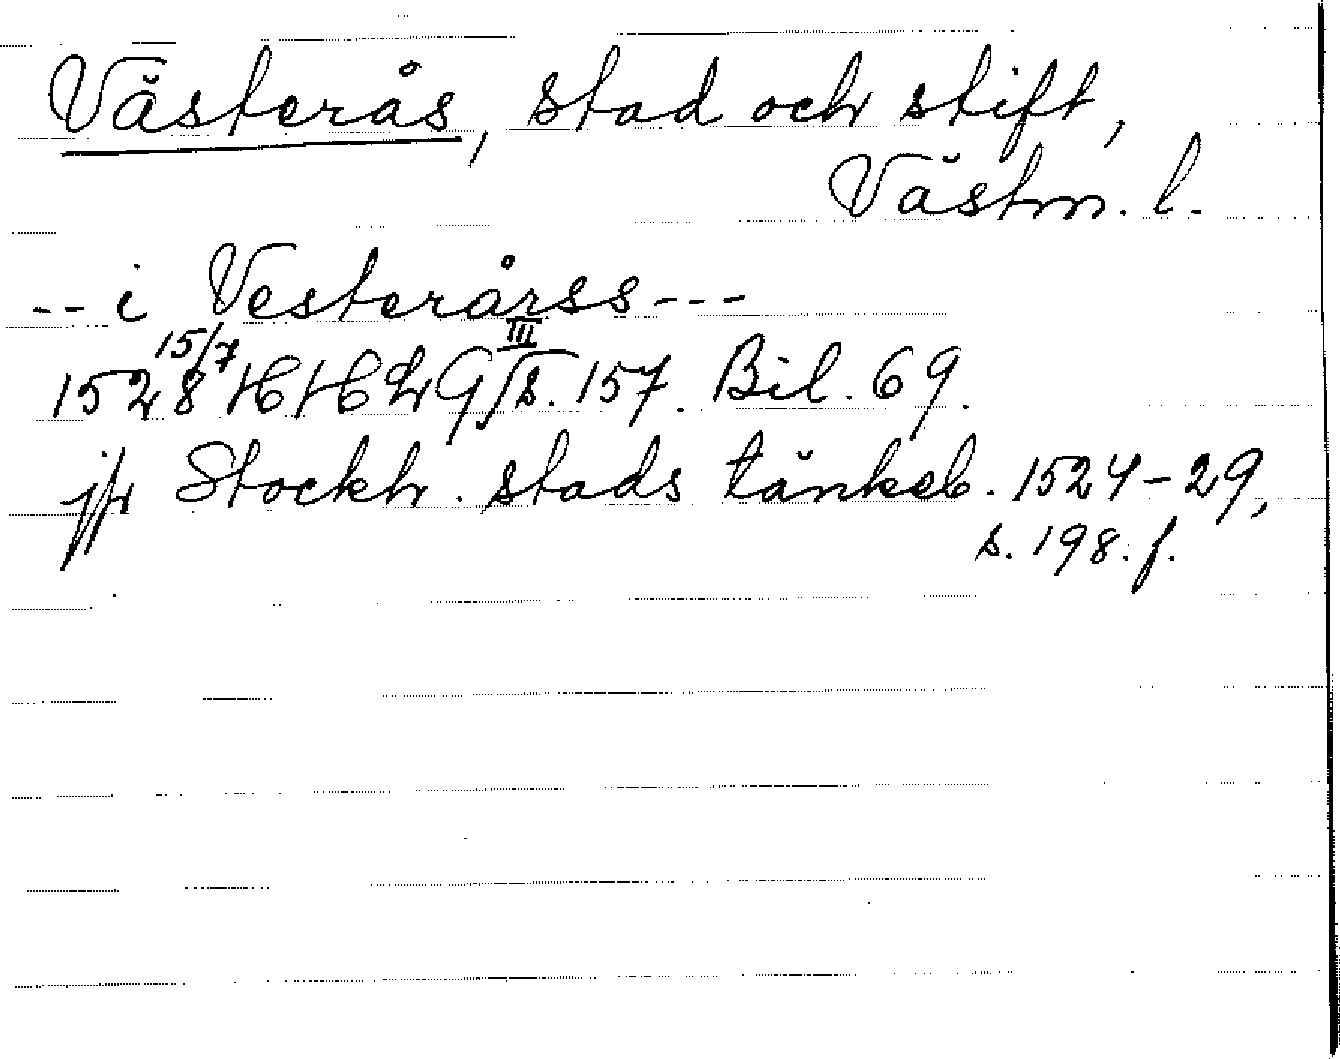 Västerås, stad och stift,
Västm. l.
-- i Vesterårss ---
1528 15/7 HH 29 III s. 157. Bil. 69.
jfr Stockh. stads tänkeb. 1524-29,
s. 198. f.